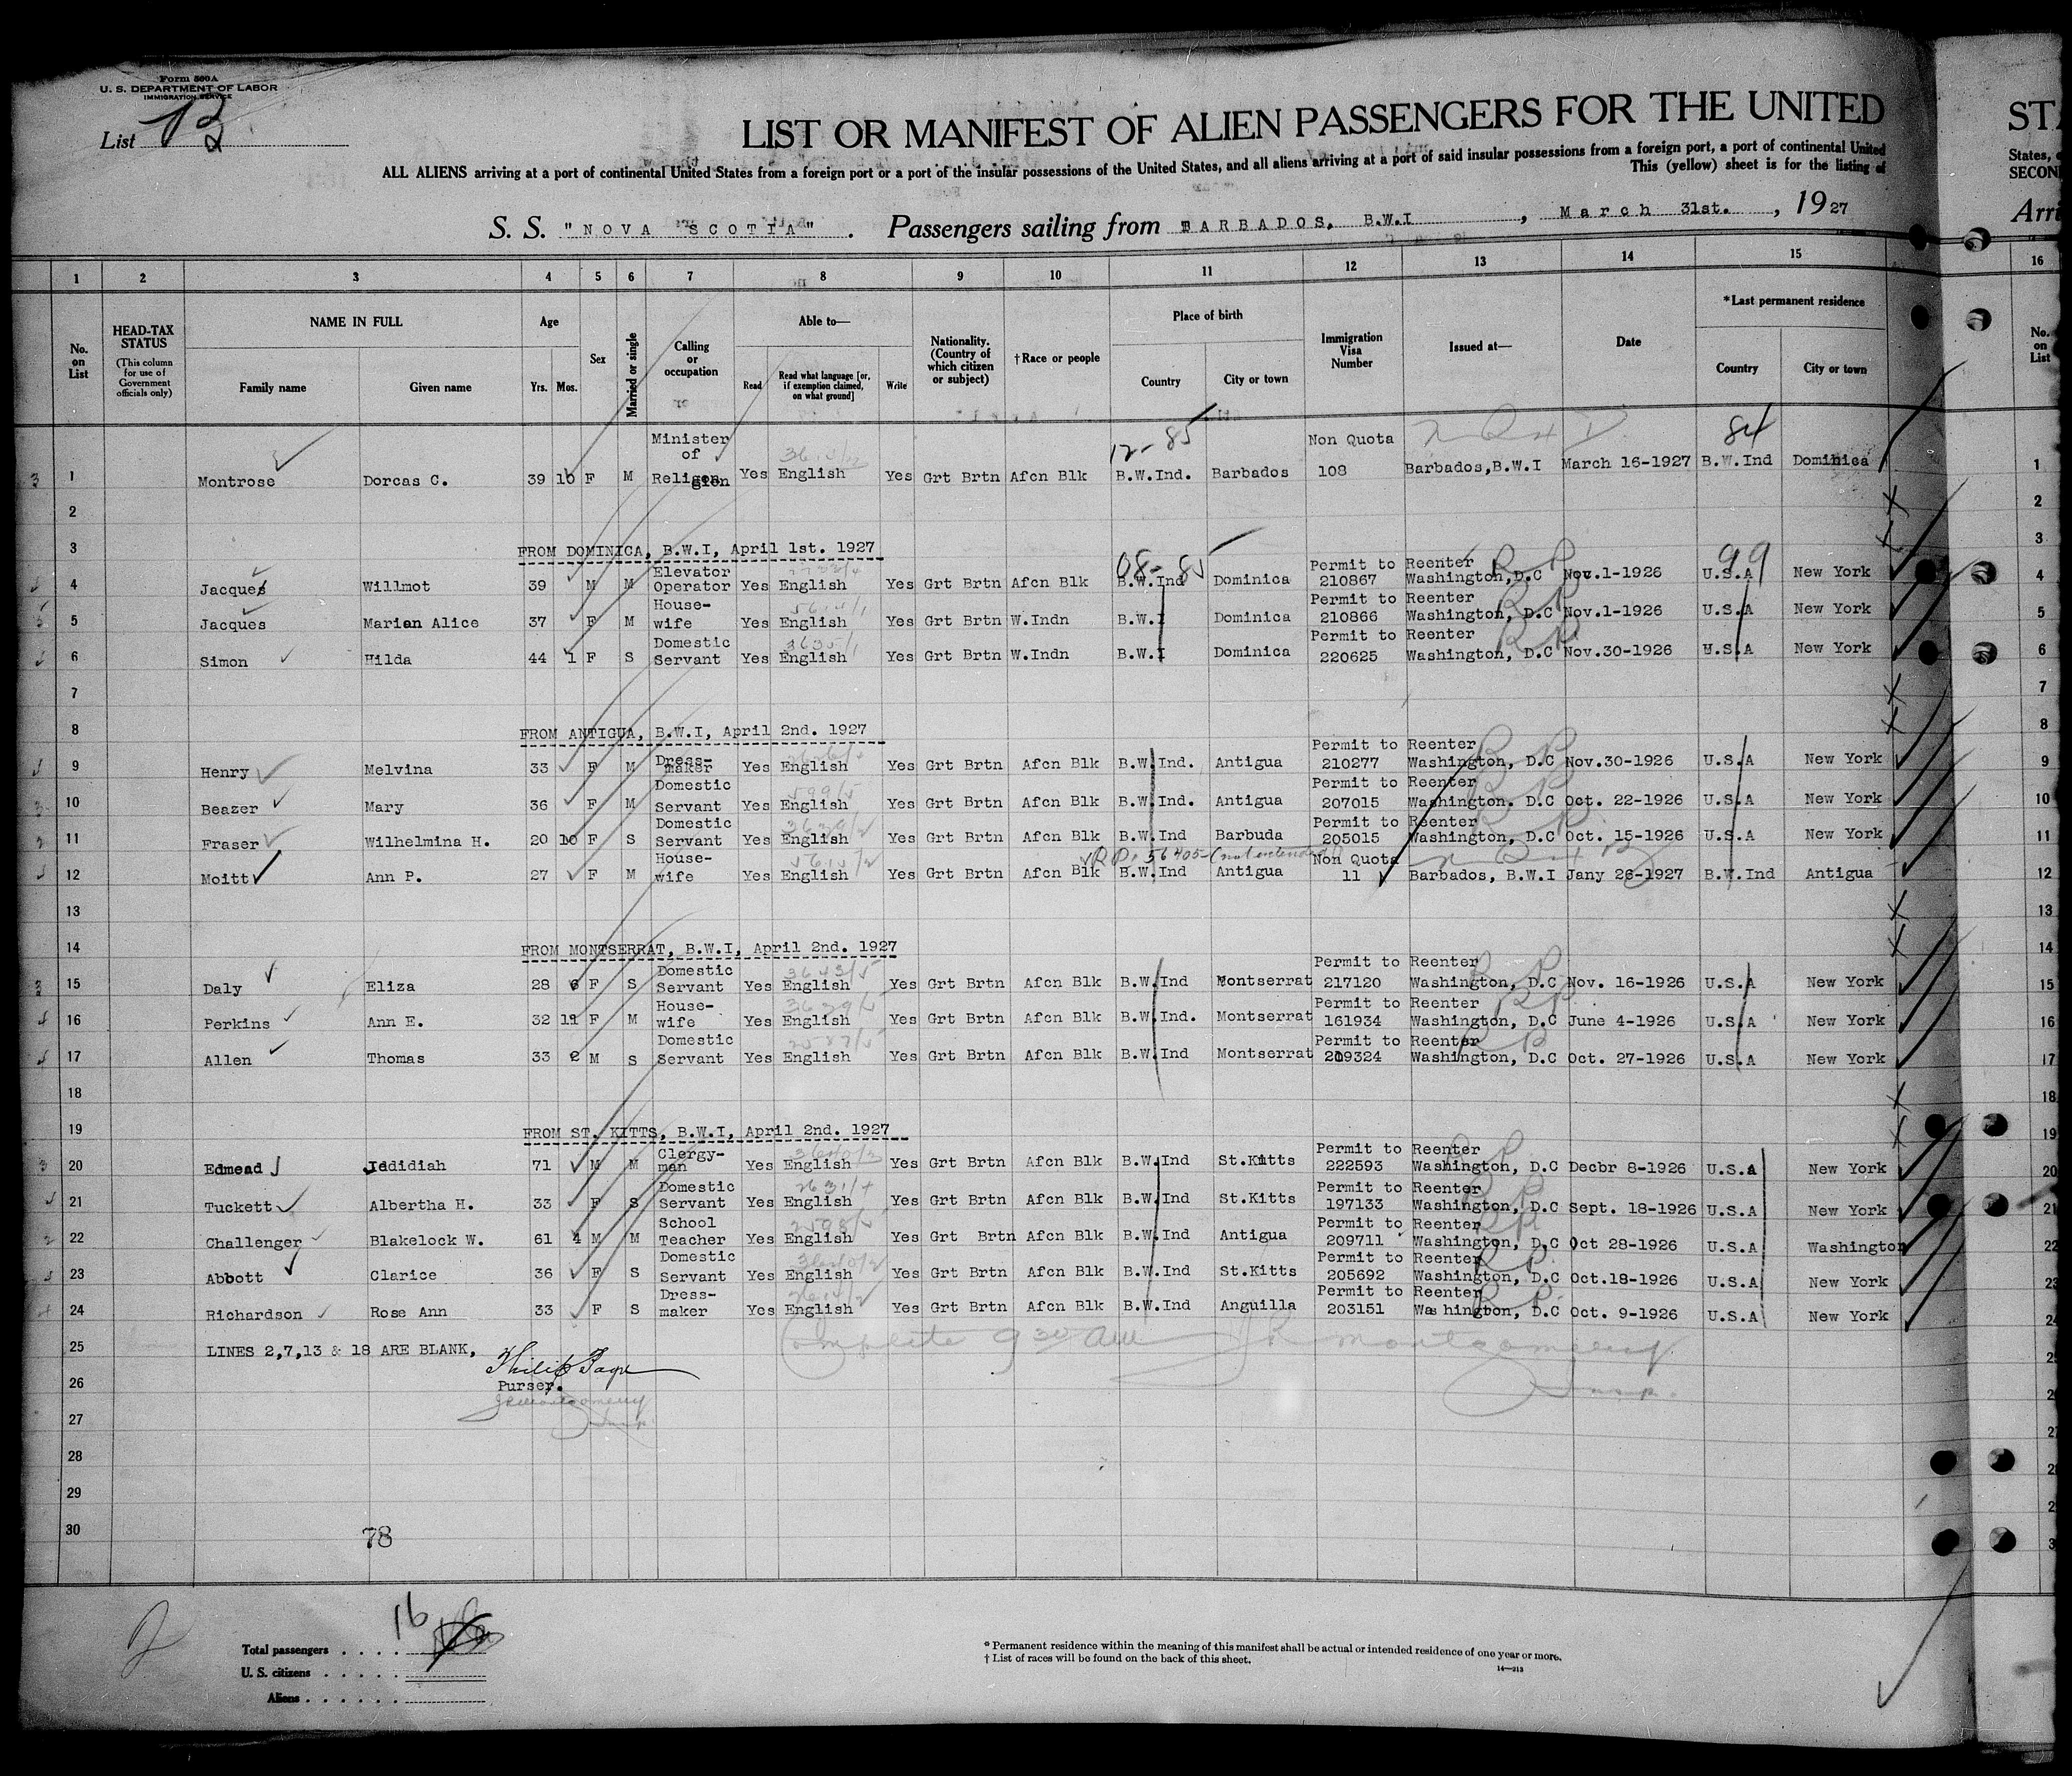 Form 500 A
U. S. DEPARTMENT OF LABOR
IMMIGRATION SERVICE
List
LIST OR MANIFEST OF ALIEN PASSENGERS FOR THE UNITED
ALL ALIENS arriving at a port of continental United States from a foreign port or a port of the insular possessions of the United States, and all aliens arriving at a port of said insular possessions from a foreign port, a port of continental United
This (yellow) sheet is for the listing of
S. S. "NOVA SCOTIA". Passengers sailing from BARBADOS, B.W.I, March 31st., 1927
STA
States,
SECON
Arri
1 2 3 4 5 6 7 8 9 10 11 12 13 14 15 16
No. on List
HEAD-TAX STATUS (This column for use of Government officials only)
NAME IN FULL Family name Given name
Age Yrs. Mos.
Sex
Married or single
Calling or occupation
Able to— Read Read what language [or, if exemption claimed, on what ground] Write
Nationality. (Country of which citizen or subject)
† Race or people
Place of birth Country City or town
Immigration Visa Number
Issued at—
Date
*Last permanent residence Country City or town
No. on List
12-85 84
1 Montrose Dorcas C. 39 10 F M Minister of Religion Yes English Yes Grt Brtn Afcn Blk B.W.Ind. Barbados Non Quota 108 Barbados,B.W.I March 16-1927 B.W.Ind Dominica 1
2 2
3 FROM DOMINICA, B.W.I, April 1st. 1927 3
08-85 99
4 Jacques Willmot 39 M M Elevator Operator Yes English Yes Grt Brtn Afcn Blk B.W.Ind Dominica Permit to Reenter 210867 Washington,D.C Nov.1-1926 U.S.A New York 4
5 Jacques Marian Alice 37 F M House-wife Yes English Yes Grt Brtn W.Indn B.W.I Dominica Permit to Reenter 210866 Washington, D.C Nov.1-1926 U.S.A New York 5
6 Simon Hilda 44 1 F S Domestic Servant Yes English Yes Grt Brtn W.Indn B.W.I Dominica Permit to Reenter 220625 Washington, D.C Nov.30-1926 U.S.A New York 6
7 7
8 FROM ANTIGUA, B.W.I, April 2nd. 1927 8
9 Henry Melvina 33 F M Dress-maker Yes English Yes Grt Brtn Afcn Blk B.W.Ind. Antigua Permit to Reenter 210277 Washington, D.C Nov.30-1926 U.S.A New York 9
10 Beazer Mary 36 F M Domestic Servant Yes English Yes Grt Brtn Afcn Blk B.W.Ind. Antigua Permit to Reenter 207015 Washington. D.C Oct. 22-1926 U.S.A New York 10
11 Fraser Wilhelmina H. 20 10 F S Domestic Servant Yes English Yes Grt Brtn Afcn Blk B.W.Ind Barbuda Permit to Reenter 205015 Washington, D.C Oct. 15-1926 U.S.A New York 11
RP. 56405-(not extended)
12 Moitt Ann P. 27 F M House-wife Yes English Yes Grt Brtn Afcn Blk B.W.Ind Antigua Non Quota 11 Barbados, B.W.I Jany 26-1927 B.W.Ind Antigua 12
13 13
14 FROM MONTSERRAT, B.W.I, April 2nd. 1927 14
15 Daly Eliza 28 6 F S Domestic Servant Yes English Yes Grt Brtn Afcn Blk B.W.Ind Montserrat Permit to Reenter 217120 Washington, D.C Nov. 16-1926 U.S.A New York 15
16 Perkins Ann E. 32 11 F M House-wife Yes English Yes Grt Brtn Afcn Blk B.W.Ind. Montserrat Permit to Reenter 161934 Washington, D.C June 4-1926 U.S.A New York 16
17 Allen Thomas 33 2 M S Domestic Servant Yes English Yes Grt Brtn Afcn Blk B.W.Ind Montserrat Permit to Reenter 209324 Washington, D.C Oct. 27-1926 U.S.A New York 17
18 18
19 FROM ST. KITTS, B.W.I, April 2nd. 1927 19
20 Edmead Jedidiah 71 M M Clergy-man Yes English Yes Grt Brtn Afcn Blk B.W.Ind St.Kitts Permit to Reenter 222593 Washington, D.C Decbr 8-1926 U.S.A New York 20
21 Tuckett Albertha H. 33 F S Domestic Servant Yes English Yes Grt Brtn Afcn Blk B.W.Ind St.Kitts Permit to Reenter 197133 Washington, D.C Sept. 18-1926 U.S.A New York 21
22 Challenger Blakelock W. 61 4 M M School Teacher Yes English Yes Grt Brtn Afcn Blk B.W.Ind Antigua Permit to Reenter 209711 Washington, D.C Oct 28-1926 U.S.A Washington 22
23 Abbott Clarice 36 F S Domestic Servant Yes English Yes Grt Brtn Afcn Blk B.W.Ind St.Kitts Permit to Reenter 205692 Washington, D.C Oct.18-1926 U.S.A New York 23
24 Richardson Rose Ann 33 F S Dress-maker Yes English Yes Grt Brtn Afcn Blk B.W.Ind Anguilla Permit to Reenter 203151 Washington, D.C Oct. 9-1926 U.S.A New York 24
25 LINES 2,7,13 & 18 ARE BLANK, Complete 9 30 AM Montgomery
26 Purser.
27
28
29
30 78
16
Total passengers
U. S. citizens
Aliens
* Permanent residence within the meaning of this manifest shall be actual or intended residence of one year or more.
† List of races will be found on the back of this sheet.
14—213